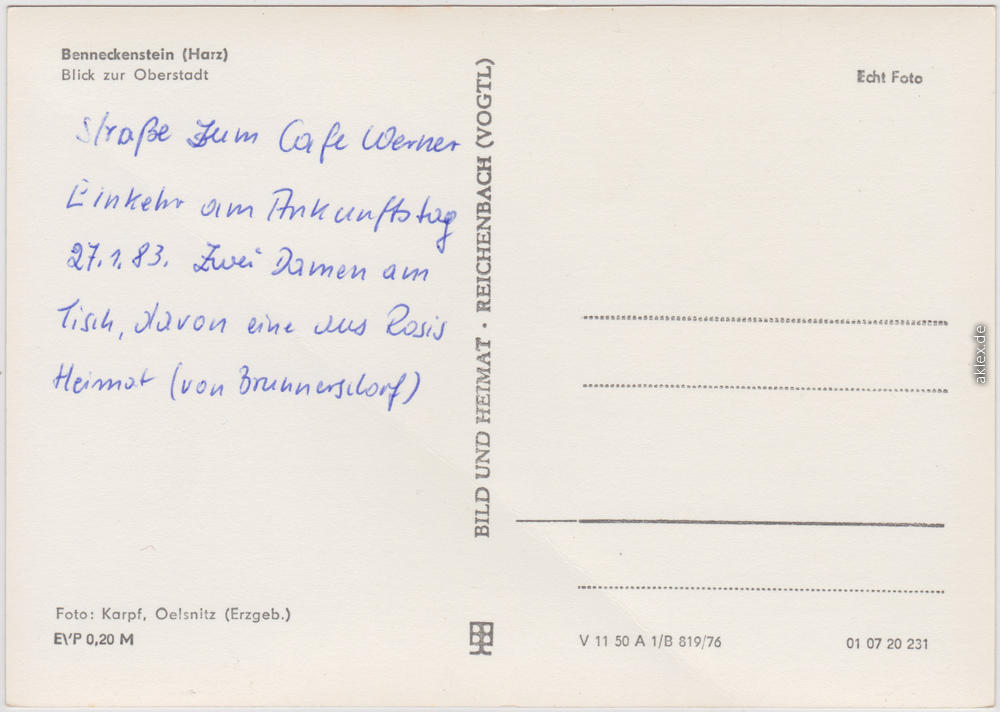 Benneckenstein (Harz)
Blick zur Oberstadt
Echt Foto
Straße zum Cafe Werner
Einkehr am Ankunftstag
27.1.83. Zwei Damen am
Tisch, davon eine aus Rosis
Heimat (von Brunnersdorf)
BILD UND HEIMAT · REICHENBACH (VOGTL)
Foto: Karpf, Oelsnitz (Erzgeb.)
EVP 0,20 M
V 11 50 A 1/B 819/76
01 07 20 231
aklex.de